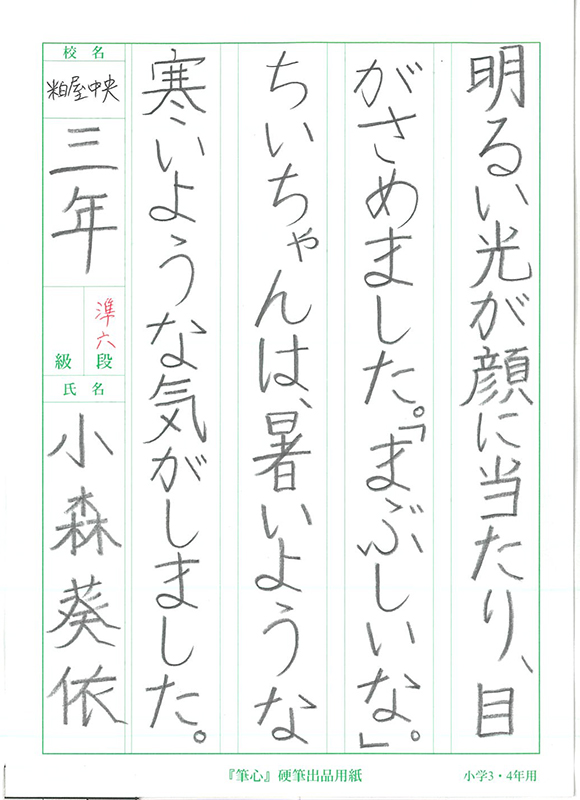 明るい光が顔に当たり、目
がさめました。「まぶしいな」。
ちいちゃんは、暑いような
寒いような気がしました。
校名
粕屋中央
三年
準六
級 段
氏名
小森葵依
『筆心』硬筆出品用紙
小学3・4年用